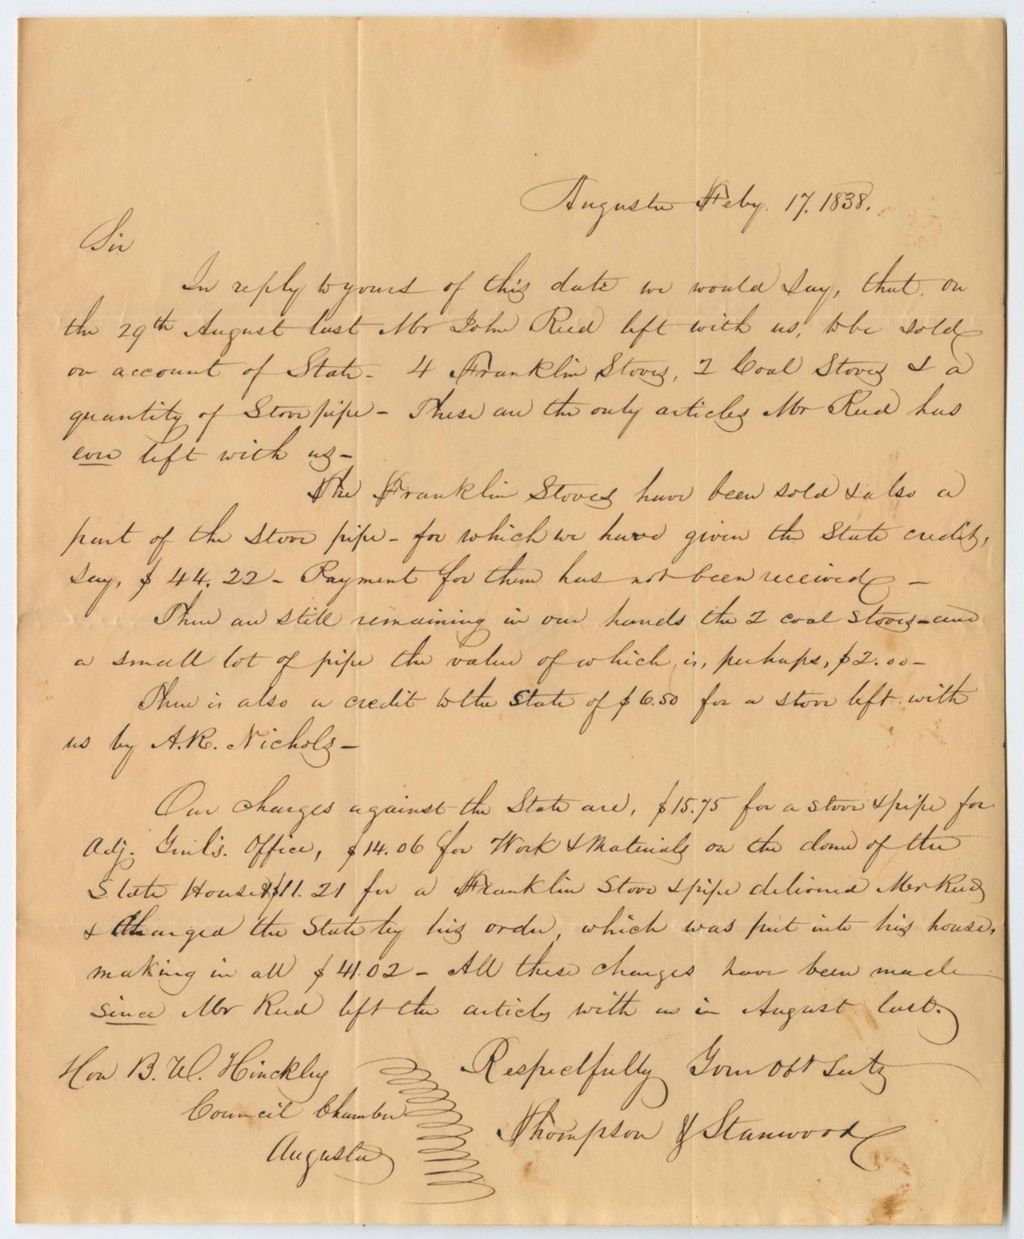 Augusta Feby. 17. 1838.
Sir
In reply to yours of this date we would say, that, on
the 29th August last Mr John Reed left with us, to be sold
on account of State - 4 Franklin Stoves, 2 Coal Stoves & a
quantity of Stove pipe - These are the only articles Mr Reed has
ever left with us -
The Franklin Stoves have been sold & also a
part of the Stove pipe - for which we have given the State credit,
say, $44.22 - Payment for them has not been received -
There are still remaining in our hands the 2 coal stoves - and
a small lot of pipe the value of which, is, perhaps, $2.00 -
There is also a credit to the State of $6.50 for a stove left with
us by A.R. Nichols -
Our charges against the State are, $15.75 for a stove & pipe for
Adj. Genl's. Office, $14.06 for Work & Materials on the dome of the
State House & $11.21 for a Franklin Stove & pipe delivered Mr Reed
& Charged the State by his order, which was put into his house,
making in all $41.02 - All these charges have been made
since Mr Reed left the articles with us in August last.
Respectfully Your Obt Servts
Thompson & Stanwood
Hon B. W. Hinckley
Council Chamber
Augusta